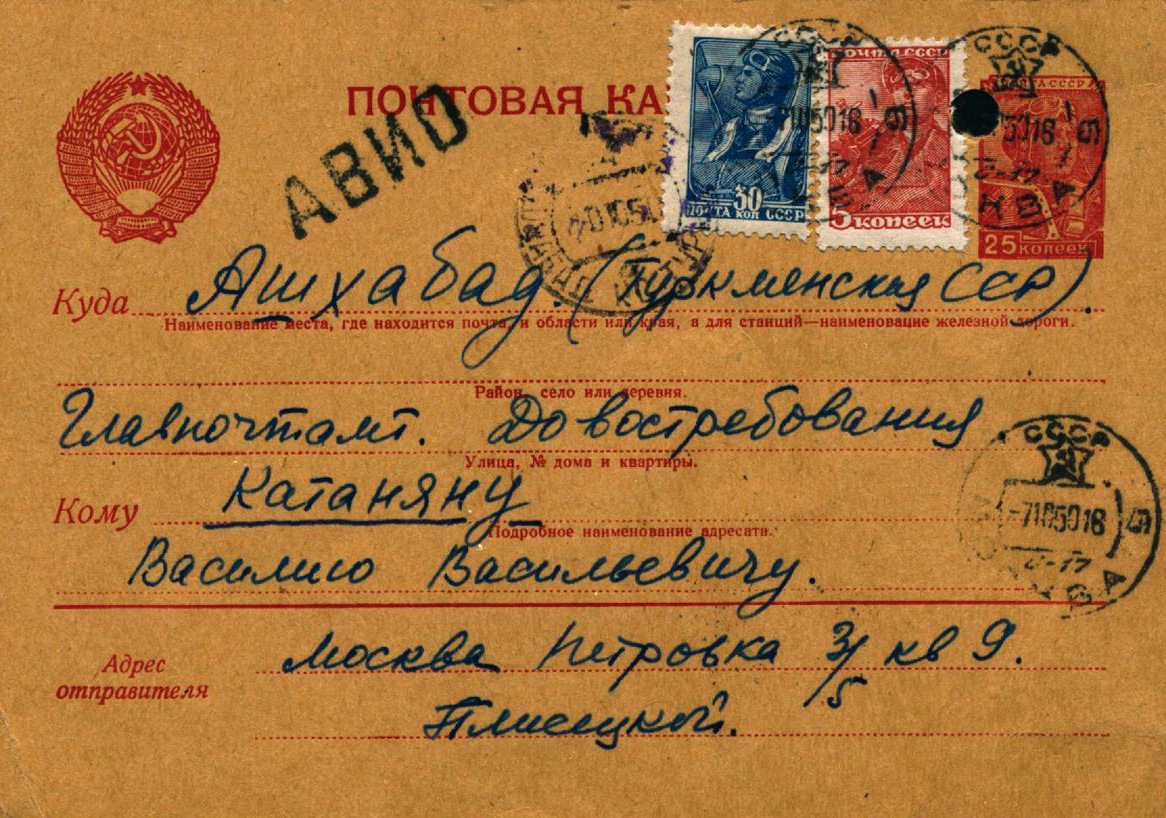 ПОЧТОВАЯ КА
АВИО
СССР
ПОЧТА СССР
30
ПОЧТА КОП СССР
5 КОПЕЕК
25 КОПЕЕК
Куда Ашхабад. (Туркменская ССР).
Наименование места, где находится почта, и области или края, а для станций—наименование железной дороги.
Район, село или деревня.
Главпочтамт. До востребования
Улица, № дома и квартиры.
СССР
Кому Катаняну
Подробное наименование адресата.
Василию Васильевичу.
Адрес отправителя
Москва Петровка 3/5 кв 9.
Плисецкой.